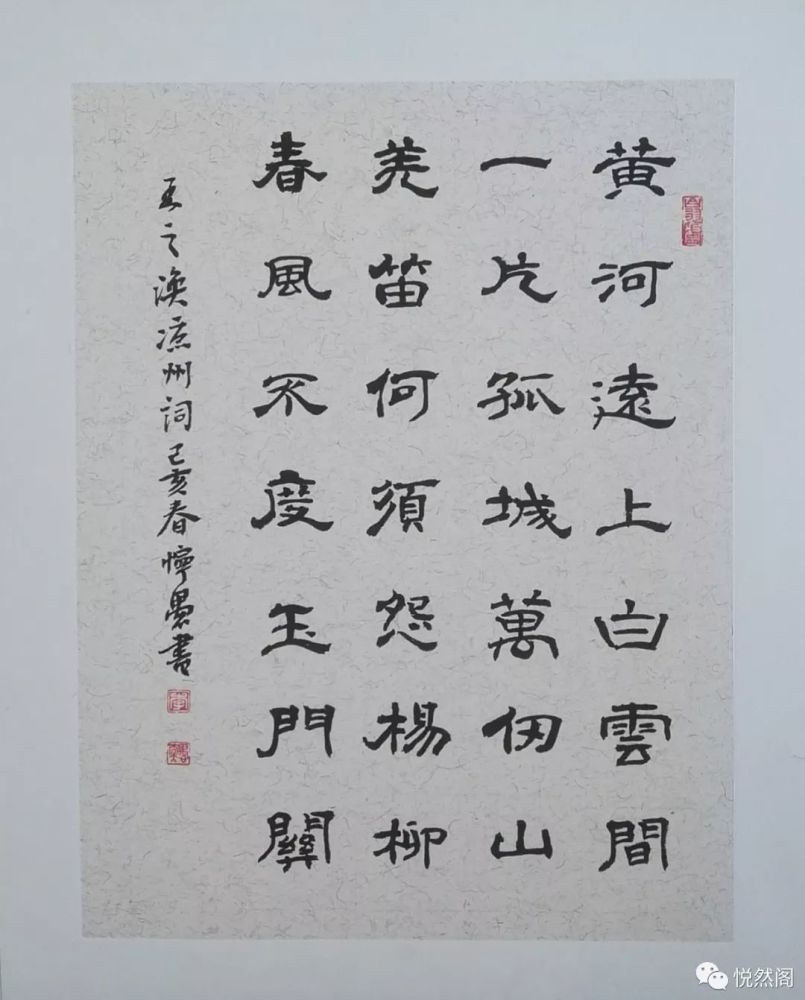 黄河遠上白雲間
一片孤城萬仞山
羌笛何須怨楊柳
春風不度玉門關
王之渙凉州詞己亥春懧愚書
悦然阁